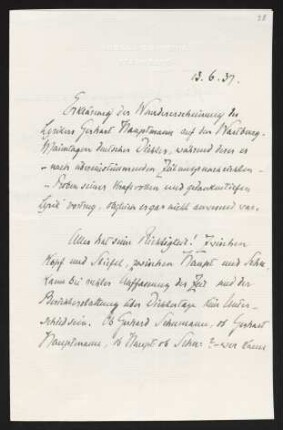 28
13. 6. 37.
Erklärung der Wundererscheinung des
Lyrikers Gerhart Hauptmann auf den Wartburg-
Maientagen deutscher Dichter, während derer er
– nach übereinstimmenden Zeitungsnachrichten –
– Proben seiner kraftvollen und gedankentiefen
Lyrik vortrug, obschon er gar nicht anwesend war.
Alles hat seine Richtigkeit! Zwischen
Kopf und Stiefel, zwischen Haupt und Schuh
kann bei rechter Auffassung der Zeit und der
Berichterstattung über Dichtertage kein Unter-
schied sein. Ob Gerhard Schumann, ob Gerhart
Hauptmann, ob Haupt ob Schu: – wer kann